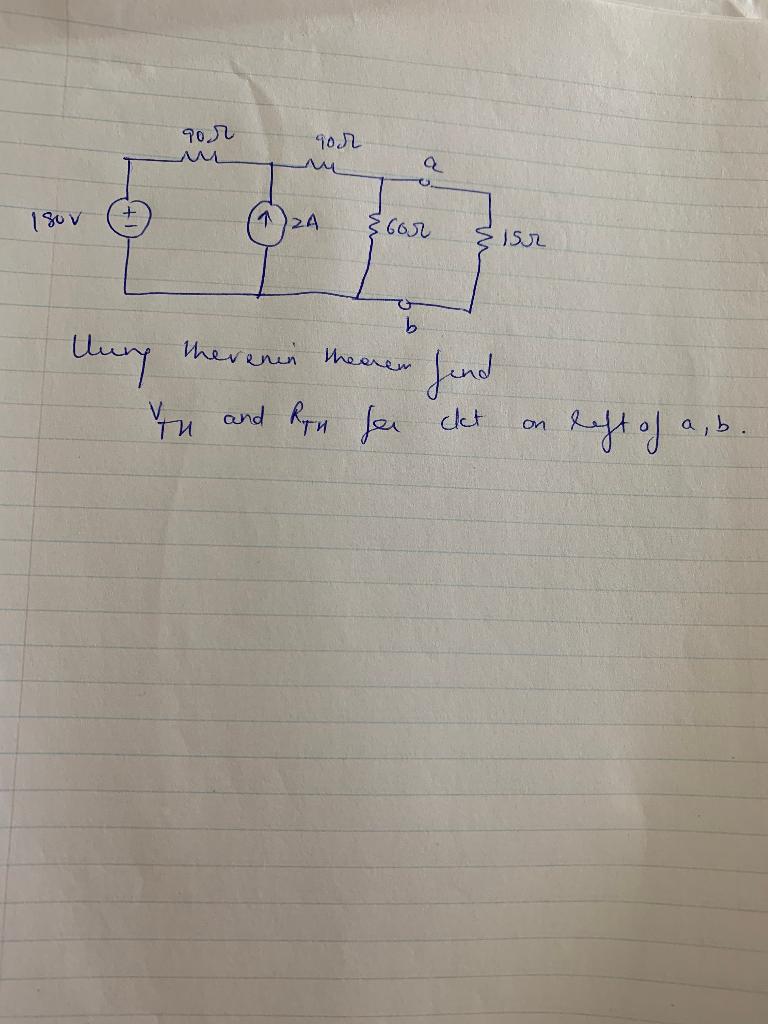 90Ω 90Ω a
180V + - 2A 60Ω 15Ω
b
Using thevenin theorem find
VTH and RTH for ckt on left of a, b.